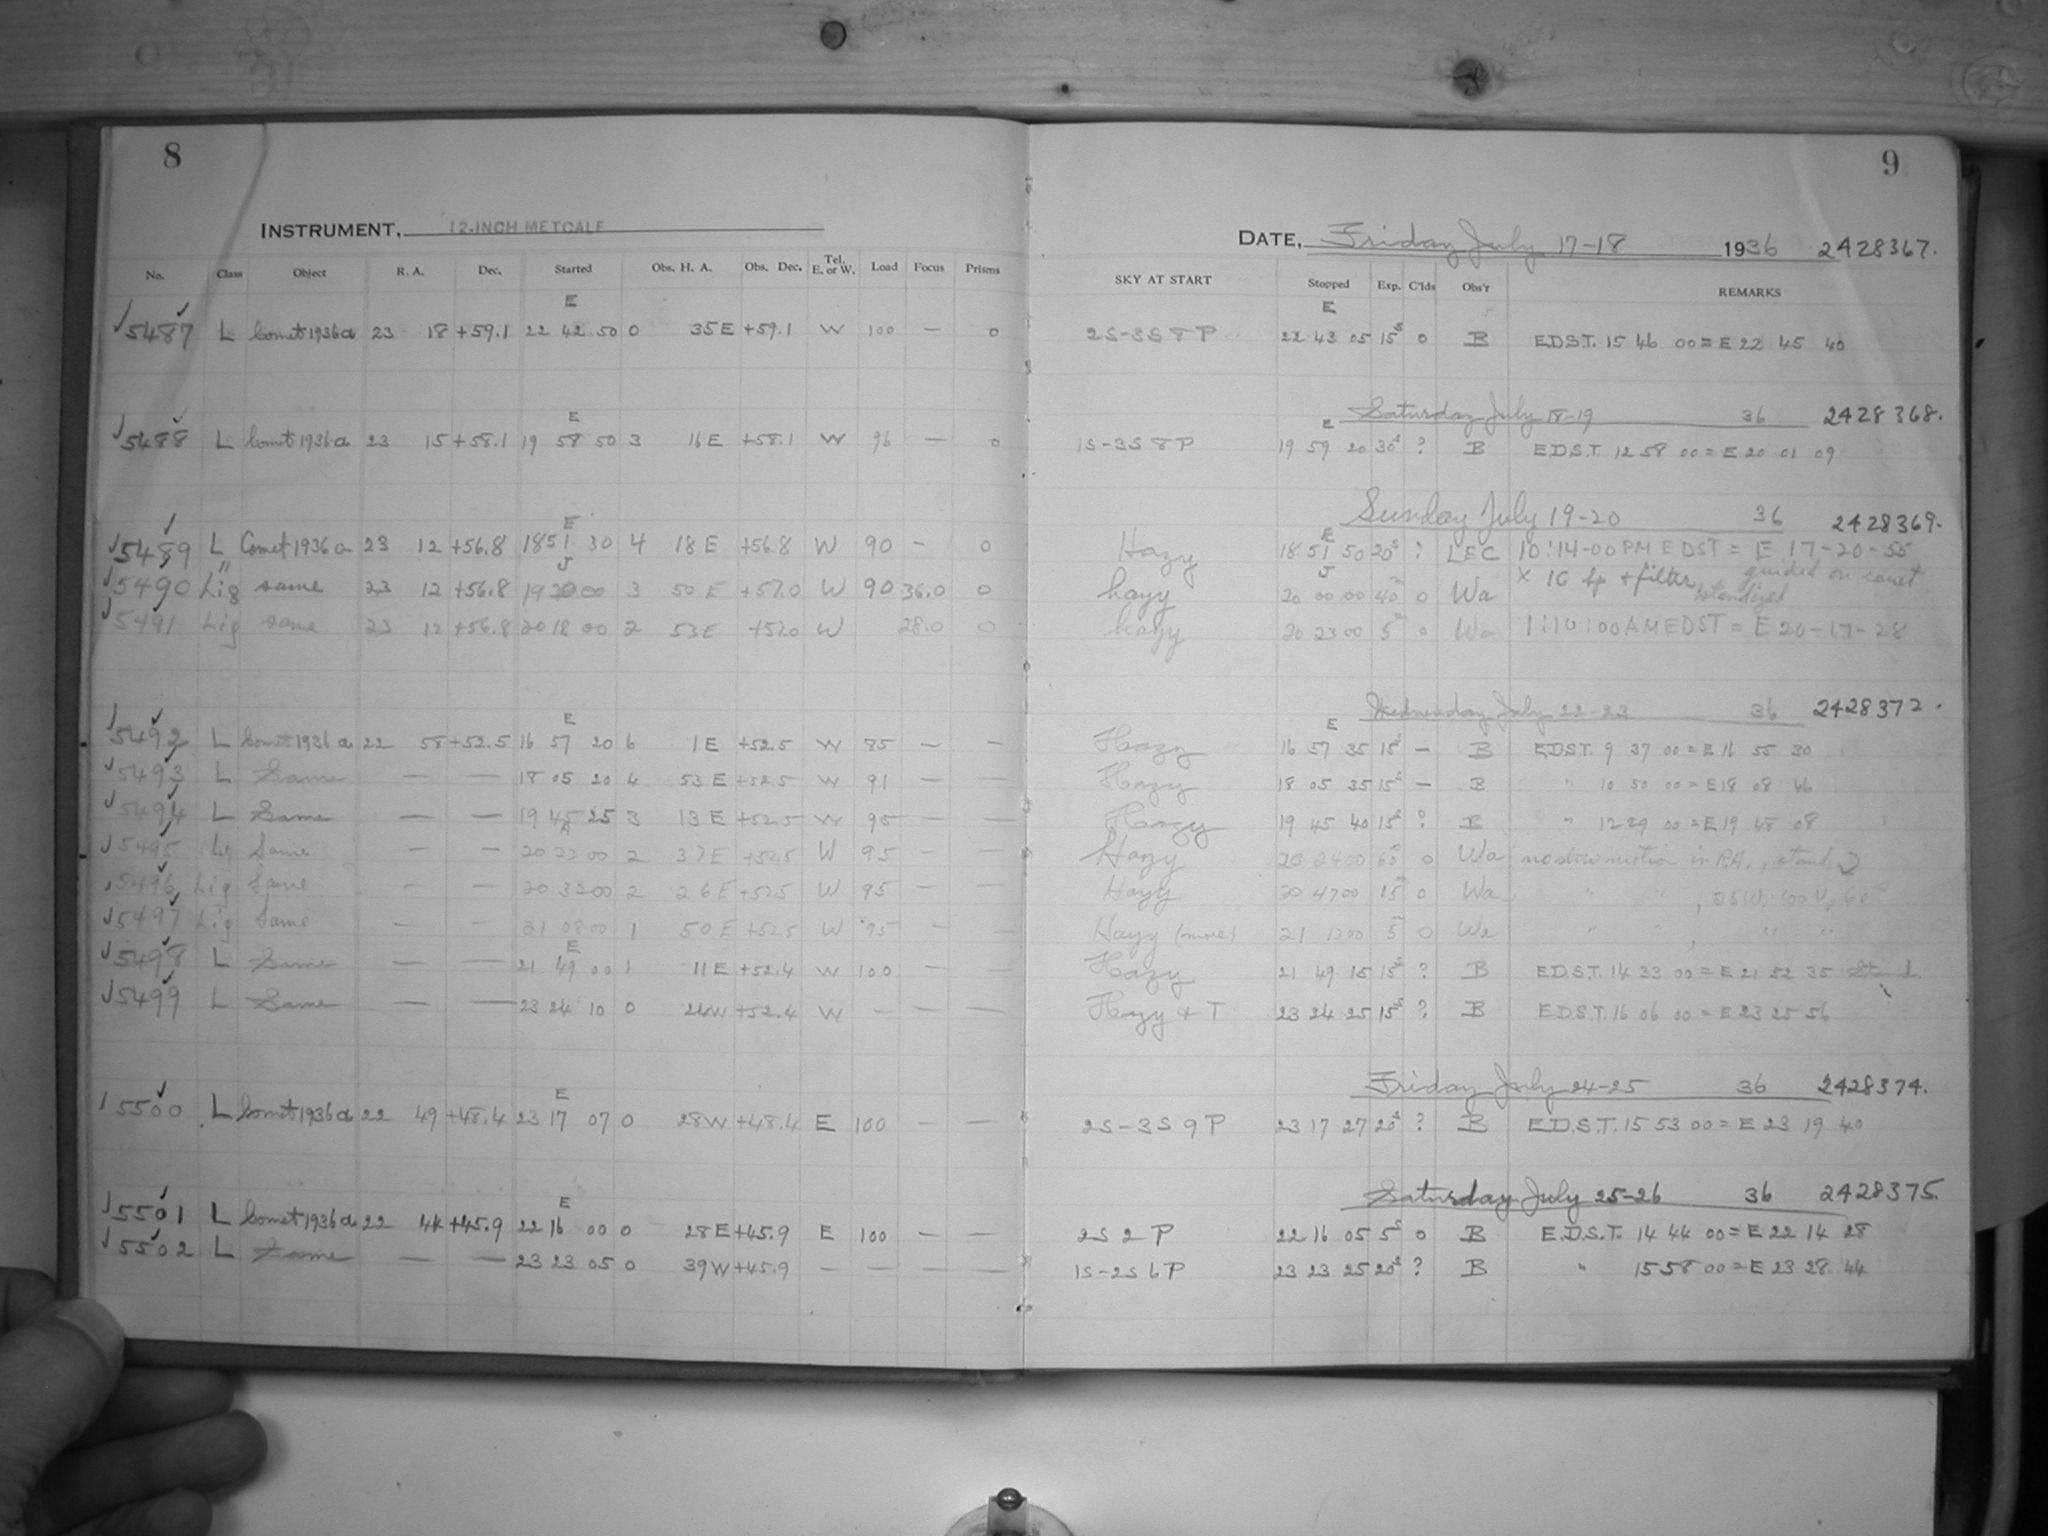 8
INSTRUMENT, 12-INCH METCALF
No. Class Object R. A. Dec. Started Obs. H. A. Obs. Dec. Tel. E. or W. Load Focus Prisms
E
✓5487 L Comet 1936a 23 18 +59.1 22 42 50 0 35E +59.1 W 100 — 0
E
✓5488 L Comet 1936a 23 15 +58.1 19 58 50 3 16E +58.1 W 96 — 0
E
✓5489 L Comet 1936a 23 12 +56.8 18 51 30 4 18E +56.8 W 90 - 0
J
✓5490 Lig same 23 12 +56.8 19 20 00 3 50E +57.0 W 90 36.0 0
✓5491 Lig same 23 12 +56.8 20 18 00 2 53E +57.0 W 28.0 0
E
✓5492 L Comet 1936a 22 58 +52.5 16 57 20 6 1E +52.5 W 85 — —
✓5493 L Same — — 18 05 20 4 53E +52.5 W 91 — —
✓5494 L Same — — 19 45 25 3 13E +52.5 W 95 — —
A
✓5495 Lig Same — — 20 23 00 2 37E +52.5 W 95 — —
✓5496 Lig Same — — 20 32 00 2 26E +52.5 W 95 — —
✓5497 Lig Same — — 21 08 00 1 50E +52.5 W 95 — —
E
✓5498 L Same — — 21 49 00 1 11E +52.4 W 100 — —
✓5499 L Same — — 23 24 10 0 24W +52.4 W — — —
E
✓5500 L Comet 1936a 22 49 +48.4 23 17 07 0 28W +48.4 E 100 — —
E
✓5501 L Comet 1936a 22 44 +45.9 22 16 00 0 28E +45.9 E 100 — —
✓5502 L Same — — 23 23 05 0 39W +45.9 — — — —
9
DATE, Friday July 17-18 1936 2428367.
SKY AT START Stopped Exp. C'lds Obs'r REMARKS
E
2S-3S 8 P 22 43 05 15s 0 B E.D.S.T. 15 46 00 = E 22 45 40
Saturday July 18-19 36 2428368.
E
1S-3S 8 P 19 59 20 30s ? B E.D.S.T. 12 58 00 = E 20 01 09
Sunday July 19-20 36 2428369.
E
Hazy 18 51 50 20s ? LEC 10:14-00 PM EDST = E 17-20-55
J
hazy 20 00 00 40m 0 Wa × 16 hp + filter, guided on comet
standized
hazy 20 23 00 5m 0 Wa 1:10:00 AM EDST = E 20-17-28
Wednesday July 22-23 36 2428372.
E
Hazy 16 57 35 15s — B E.D.S.T. 9 37 00 = E 16 55 30
Hazy 18 05 35 15s — B " 10 50 00 = E 18 08 46
Hazy 19 45 40 15s ? B " 12 29 00 = E 19 48 08
Hazy 20 24 00 60s 0 Wa no slow motion in R.A., stand.
Hazy 20 47 00 15m 0 Wa " " , 25W, 100V, 60s
Hazy (more) 21 13 00 5m 0 Wa " " , " "
Hazy 21 49 15 15s ? B E.D.S.T. 14 33 00 = E 21 52 35 Stand.
Hazy + T 23 24 25 15s ? B E.D.S.T. 16 06 00 = E 23 25 56
Friday July 24-25 36 2428374.
2S-3S 9 P 23 17 27 20s ? B E.D.S.T. 15 53 00 = E 23 19 40
Saturday July 25-26 36 2428375.
2S 2 P 22 16 05 5s 0 B E.D.S.T. 14 44 00 = E 22 14 28
1S-2S 6 P 23 23 25 20s ? B " 15 58 00 = E 23 28 44